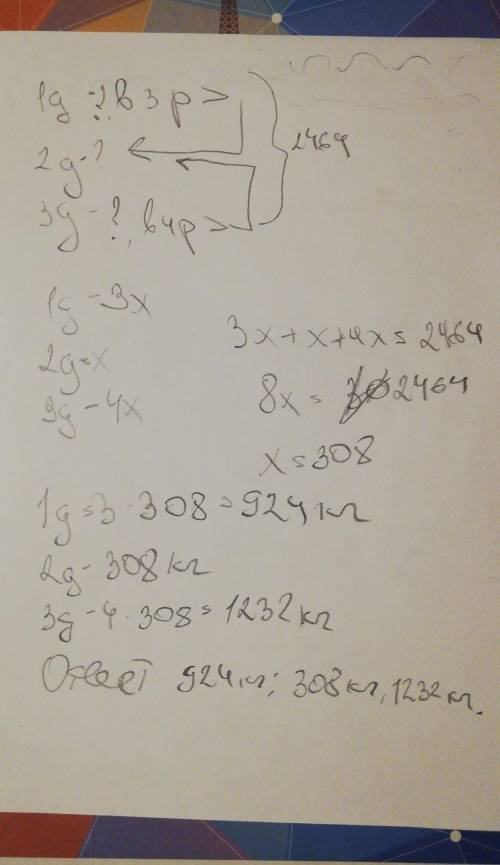 1g - ?, в 3 р >
2g - ?
3g - ?, в 4 р >
2464
1g - 3x
2g - x
3g - 4x
3x + x + 4x = 2464
8x = 2464
x = 308
1g = 3 · 308 = 924 кг
2g - 308 кг
3g - 4 · 308 = 1232 кг
Ответ 924 кг; 308 кг, 1232 кг.